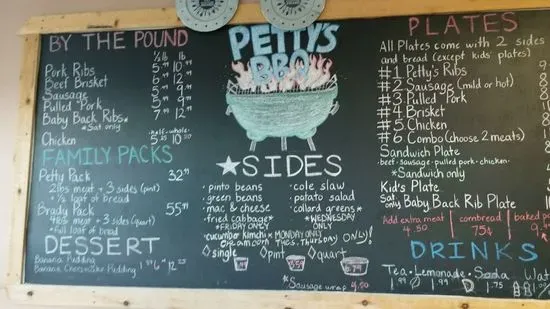 BY THE POUND
½ lb lb
Pork Ribs 5⁹⁹ 10⁹⁹
Beef Brisket 6 12
Sausage 5 9
Pulled Pork 5 9
Baby Back Ribs* 7⁹⁹ 12⁹⁹
*Sat only
half-whole
Chicken 10⁵⁰
FAMILY PACKS
Petty Pack 32⁹⁹
2lbs meat + 3 sides (pint)
+ ½ loaf of bread
Brady Pack 55⁹⁹
4lbs meat + 3 sides (quart)
+ Full loaf of bread
DESSERT
Banana Pudding
Banana Cheesecake Pudding
PETTY'S
BBQ
★SIDES
•pinto beans
•green beans
•mac & cheese
•fried cabbage*
*FRIDAY ONLY!
•cucumber kimchi*MONDAY ONLY
•cole slaw
•potato salad
•collard greens*
*WEDNESDAY
ONLY
Tues. Thursday ONLY!
◇single ◇pint ◇quart
*Sausage wrap 4.50
PLATES
All Plates come with 2 sides
and bread (except kids' plates)
#1 Petty's Ribs
#2 Sausage (mild or hot)
#3 Pulled Pork
#4 Brisket
#5 Chicken
#6 Combo (choose 2 meats)
Sandwich Plate
•beef•sausage•pulled pork•chicken•
*Sandwich only
Kid's Plate
Sat only Baby Back Rib Plate
Add extra meat 4.50
cornbread 75¢
baked
DRINKS
Tea•Lemonade•Soda
1.99 1.99 1.75